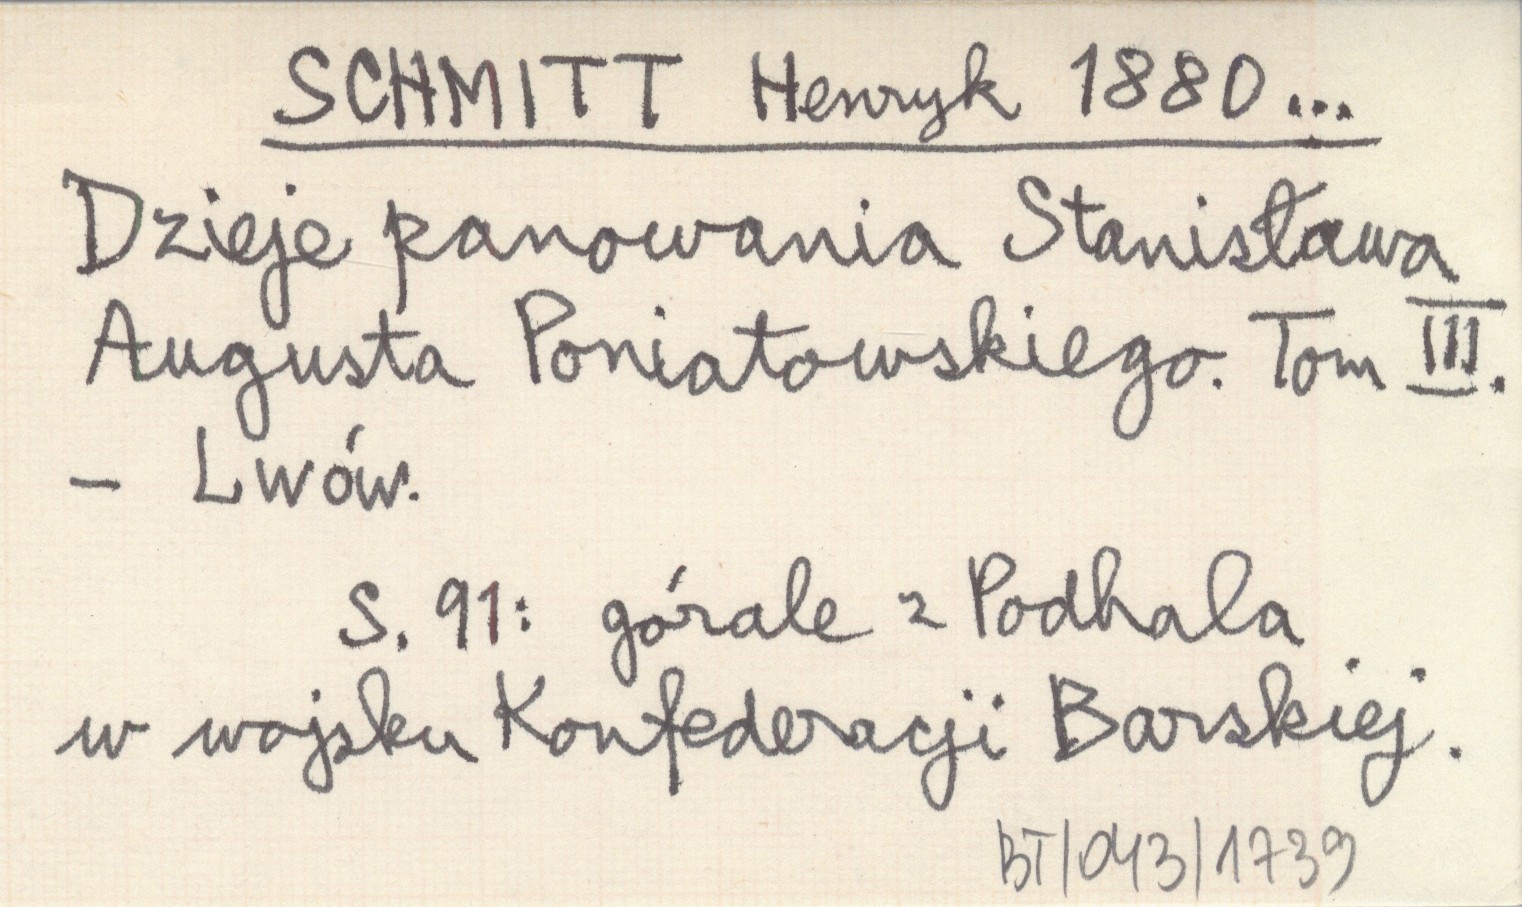 SCHMITT Henryk 1880...
Dzieje panowania Stanisława
Augusta Poniatowskiego. Tom III.
- Lwów.
S. 91: górale z Podhala
w wojsku Konfederacji Barskiej.
BT/043/1739